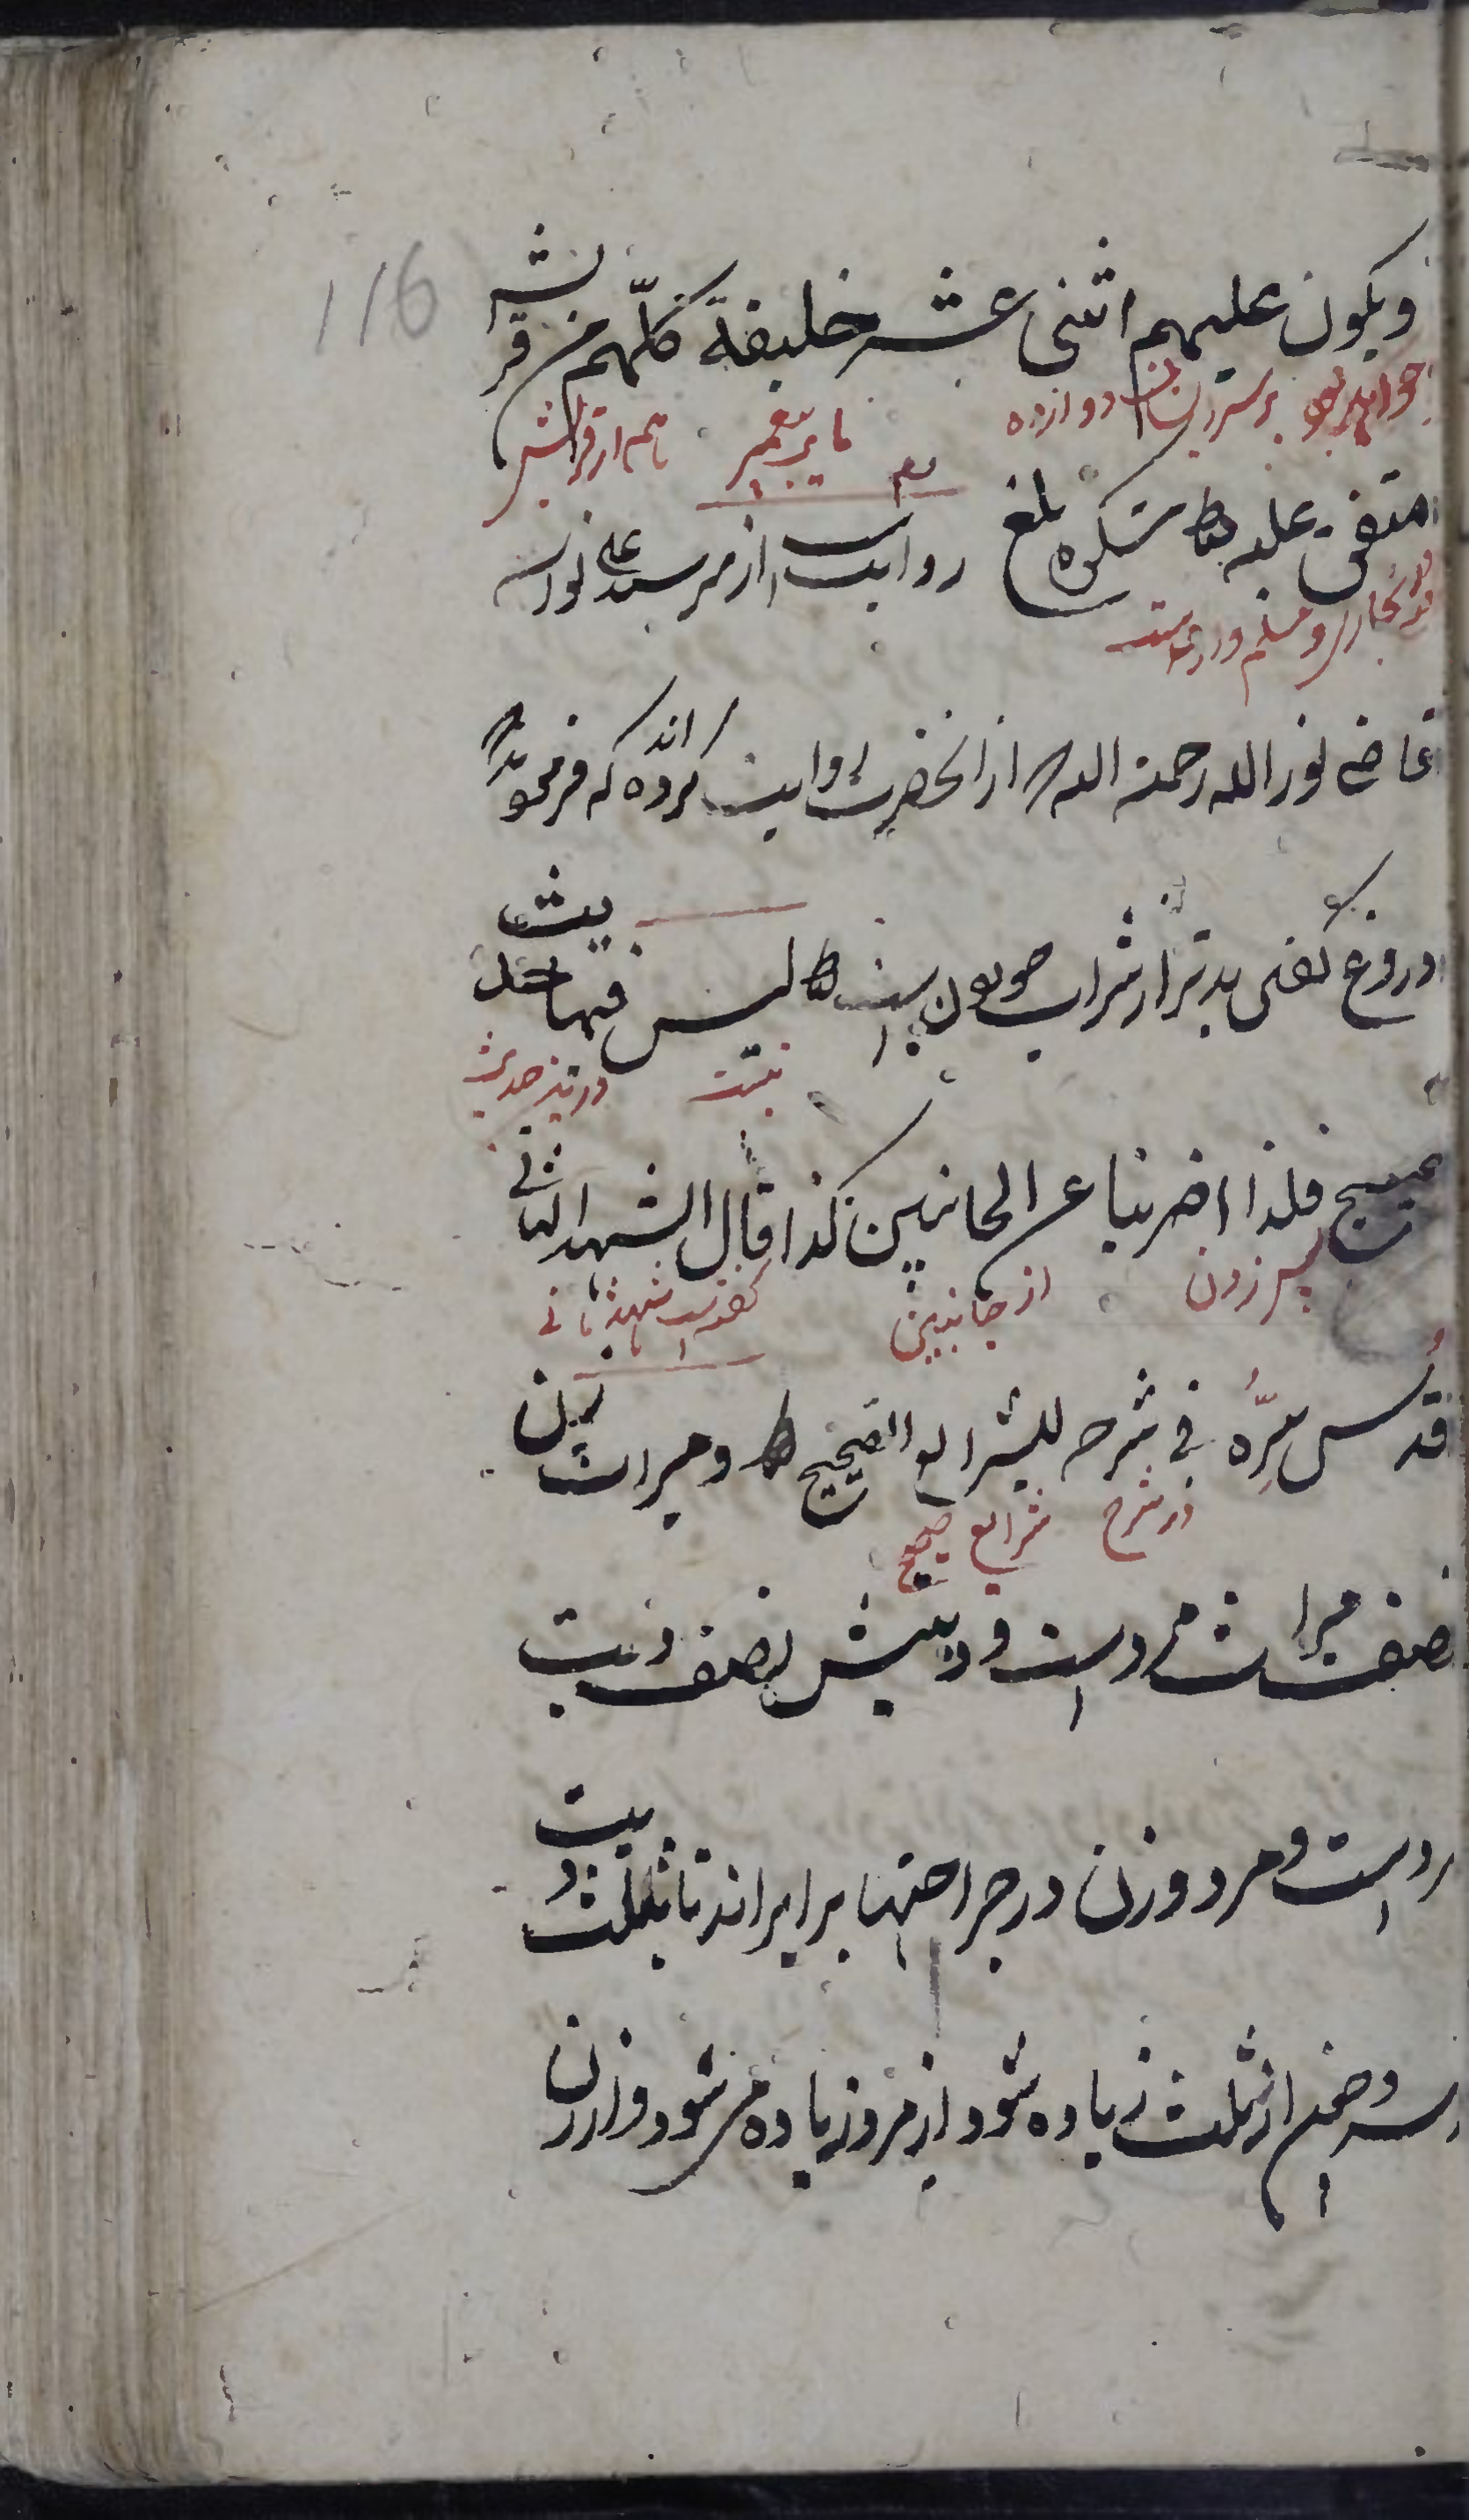 116
ویکون علیهم اثنی عشر خلیفة کلّهم من قریش
خواهد بود بر سر ایشان دوازده نایب پیغمبر تمام از قریش
متفق علیه مشکوة بلغ روایت از میر سید علی نواسه
بخاری و مسلم
قاضی نور الله رحمة الله از آنحضرت روایت کرده اند که فرمود
دروغ گفتن بدتر از شراب است لیس فیها حدیث
نیست درین حدیث
صحیح فلذا اضربنا عن الجانبین کذا قال الشهید الثانی
از جانبین گفته است شهید ثانی
قُدس سِرُّه فی شرحه للشرایع الصحیح ط ومیراث زن
در شرح شرایع صحیح
نصف میراث مرد است و دیتش نصف دیت
مرد است و مرد وزن در جراحتها برابر اند تا بثلث دیت
از ثلث زیاده شود از مرد زیاده می شود و از زن